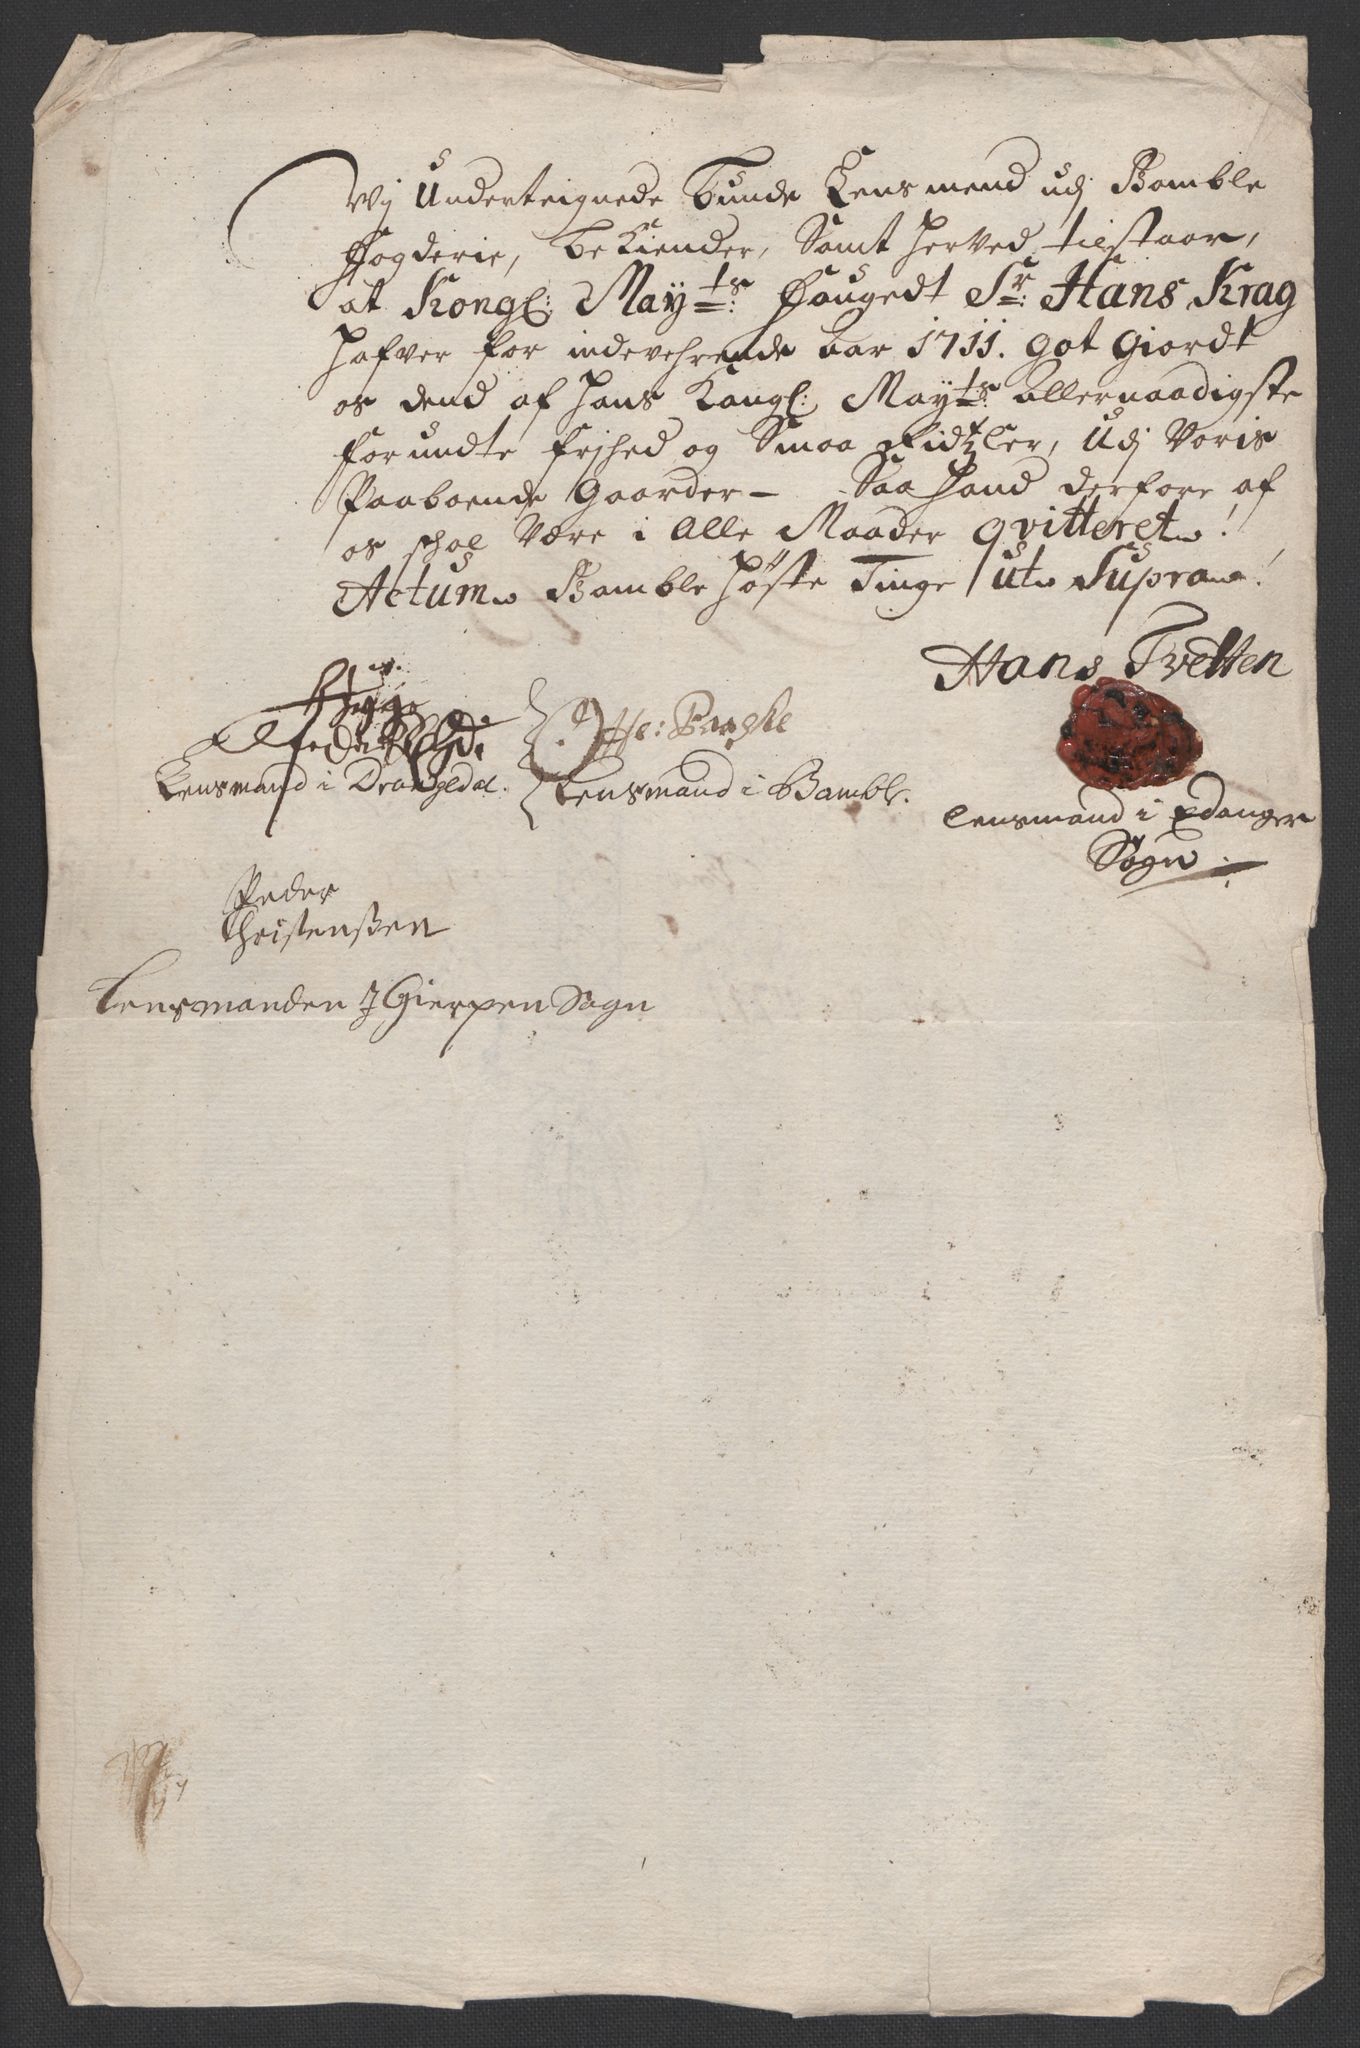 Wj Underteignede Bunde Lensmend udj Bamble
Fogderie, beKiender, Samt herved tilstaar,
at Kongl: Mayts: Fougedt Sr: Hans Krag
hafver for indeverende aar 1711. got Giordt
os dend af hans Kongl: Mayts: allernaadigste
forundte frjhed og Smaa Ridtzler, Udj Voris
Paaboende Gaarder – Saa hand derfore af
os schal Være i alle Maader qvitteret!
Actum Bamble Höste Tinge ut Supra!
Hans Tvetten
Lensmand i Drangedal.
Lensmand i Bamble.
Lensmand i Edanger
Sogn
Peder
Christenßen
Lensmanden J Gierpen Sogn